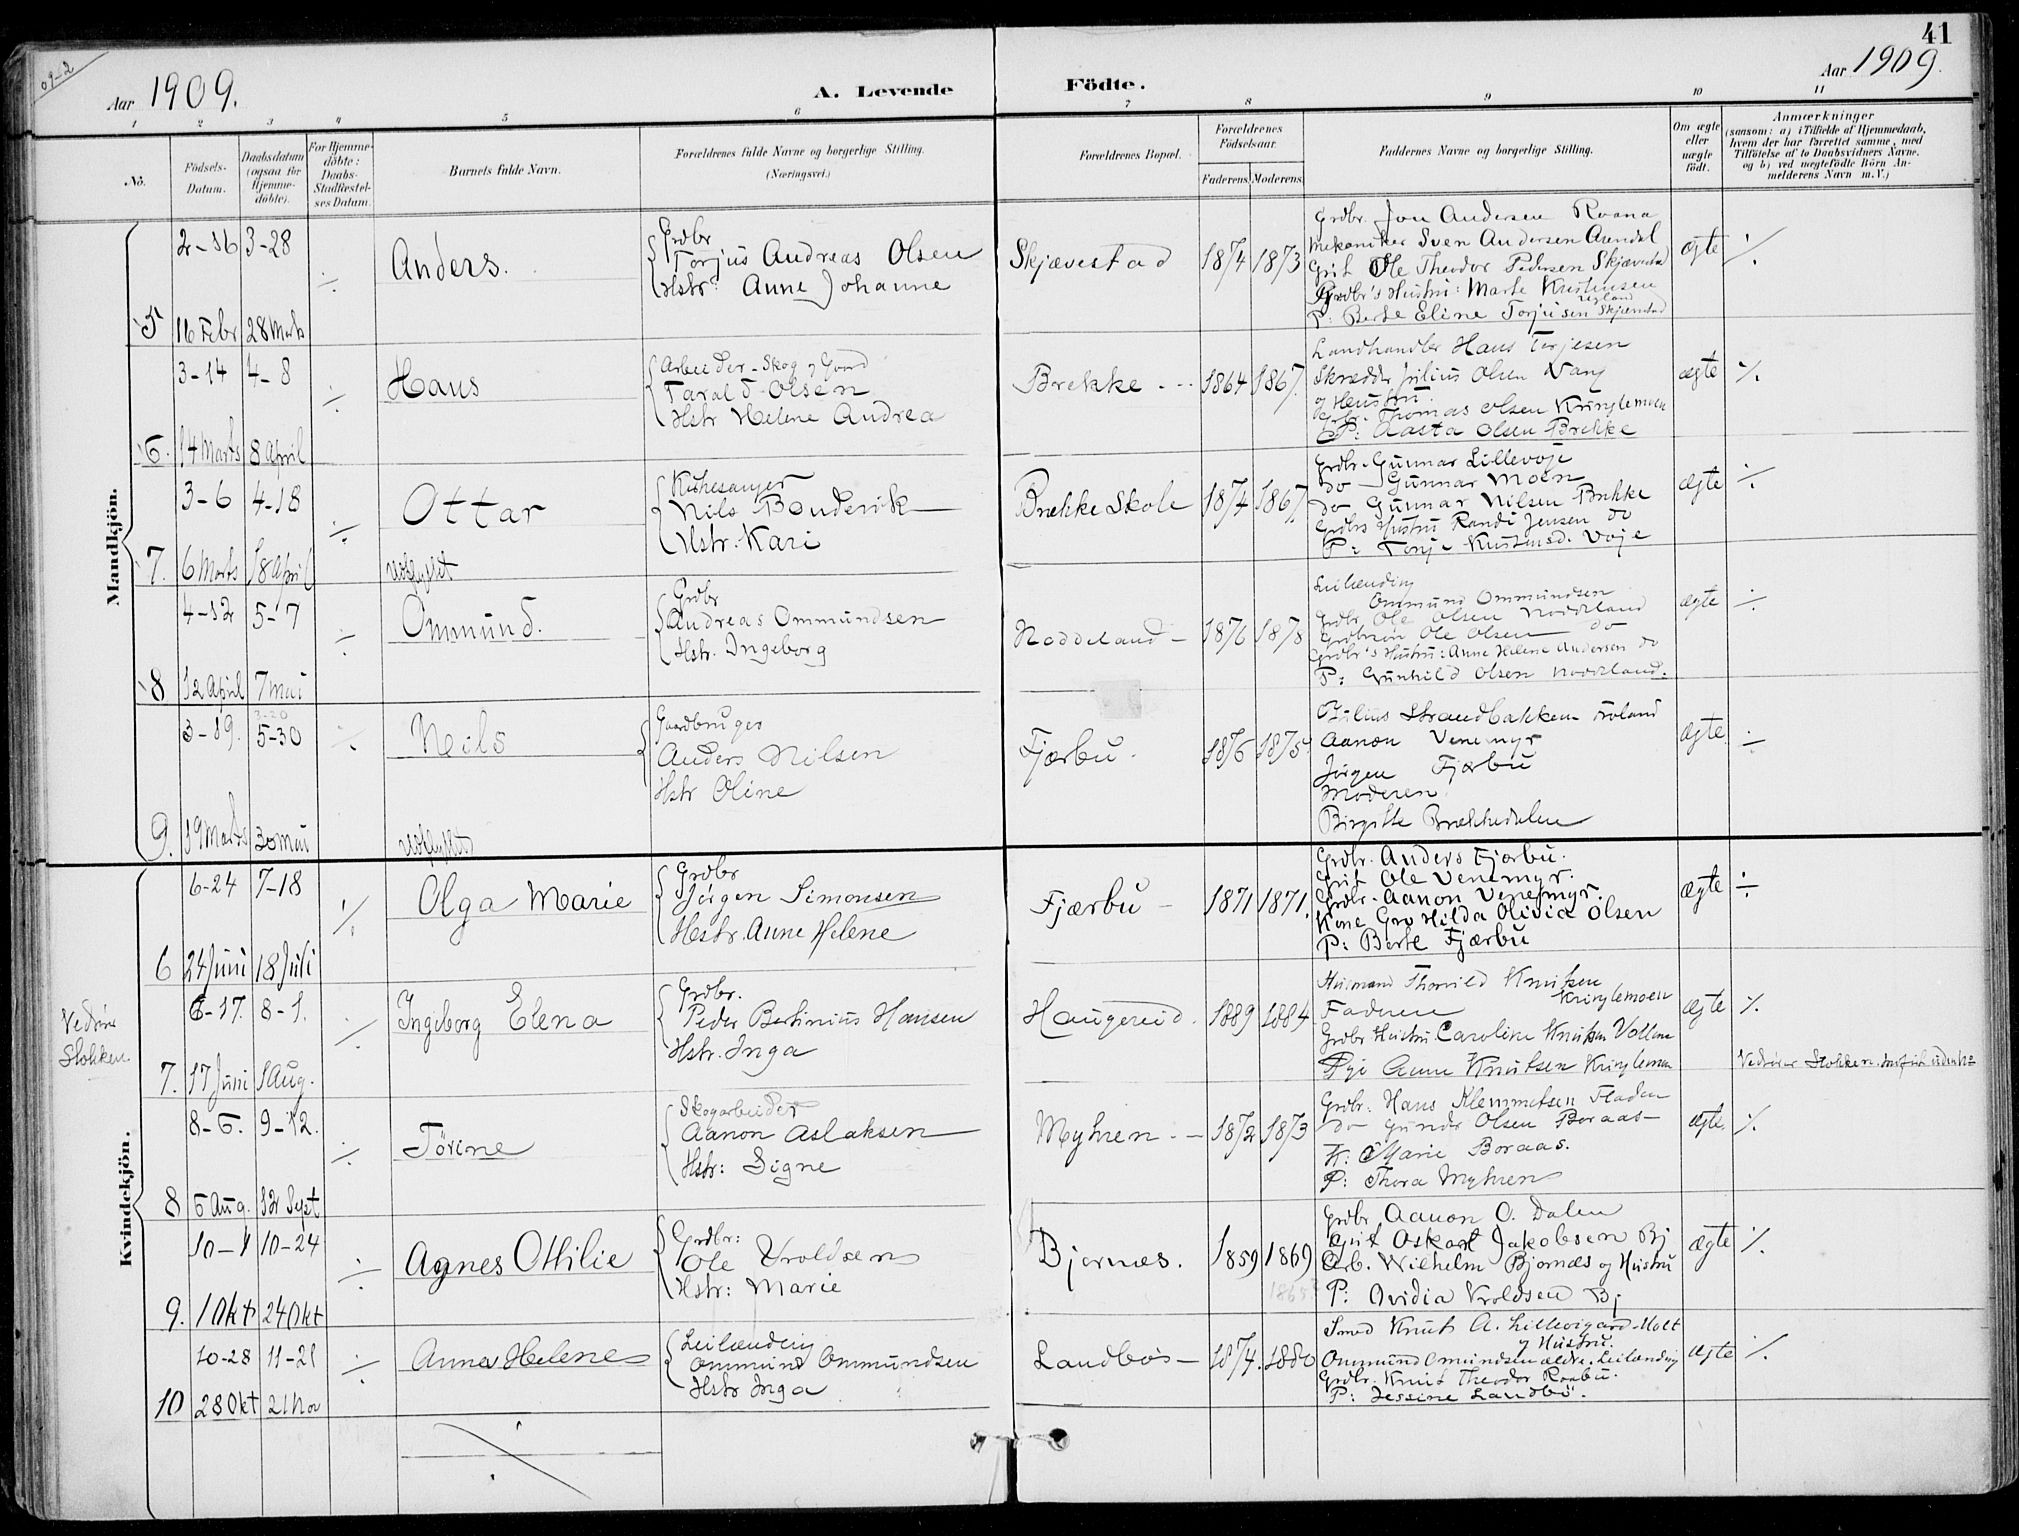 09-2
41
Aar 1909.
A. Levende Födte.
Aar 1909.
1 2 3 4 5 6 7 8 9 10 11
No.
Födsels-Datum.
Daabsdatum (ogsaa for Hjemme-döbte).
For Hjemme-döbte: Daabs-Stadfæstel-ses Datum.
Barnets fulde Navn.
Forældrenes fulde Navne og borgerlige Stilling. (Næringsvei.)
Forældrenes Bopæl.
Forældrenes Födselsaar.
Faderens. Moderens.
Faddernes Navne og borgerlige Stilling.
Om ægte eller uægte födt.
Anmærkninger (saasom: a) i Tilfælde af Hjemmedaab, hvem der har forrettet samme, med Tilföielse af to Daabsvidners Navne. og b) ved uægtefödte Börn An-melderens Navn m. V.)
Mandkjön.
5 2-16 3-28
16 Febr 28 Marts
÷ Anders.
Grdbr
Torjus Andreas Olsen
Hstr: Anne Johanne
Skjævestad 1874 1873
Grdbr. Jon Andersen Roana
Mekaniker Sven Andersen Arendal
Grit Ole Theodor Pedersen Skjævestad
Grdbr's Hustru: Marte Kristensen
P: Berte Eline Torjusen Skjævestad
ægte ÷
6. 3-14 4-8
14 Marts 8 April
÷ Hans
Arbeider - Skog og Gaard
Tarald T. Olsen
Hstr Helene Andrea
Brekke 1864 1867.
Landhandler Hans Terjesen
Skrædder Julius Olsen Vang
og Hustru.
Grbr. Thomas Olsen Kringlemoen
P: Aasta Olsen Brekke
ægte ÷
7. 3-6 4-18
6 Marts 18 April
÷ Ottar
Udflyttet
Kirkesanger
Nils Bondevik
Hstr. Kari
Brække Skole 1874 1867.
Grdbr. Gunnar Lillevoje
do Gunnar Moen
do Gunnar Nilsen Brekke
Grdbrs Hustru Randi Jensen do
P: Tonje Kristensd. Voje
ægte ÷
8 4-12 5-7
12 April 7 Mai
÷ Ommund.
Grdbr
Andreas Ommundsen
Hstr. Ingeborg
Noddeland 1876 1878
Leilænding
Ommund Ommundsen
Grdbr Ole Olsen Noddeland
Grdbrsøn Ole Olsen do
Grdbr's Hustru: Anne Helene Andersen do
P: Gunhild Olsen Noddeland.
ægte ÷
9. 3-19. 5-30
19 Marts 30 Mai
÷ Nils
Udflyttet
Gaardbruger
Anders Nilsen
Hstr Oline
Fjærbu. 1876 1875
Julius Strandbakken Froland
Aanon Venemyr
Jørgen Fjærbu
Moderen
Birgitte Brækkedalen
ægte ÷
Kvindekjön.
6 6-24 7-18
24 Juni 18 Juli
÷ Olga Marie
Grdbr
Jørgen Simonsen
Hstr. Anne Helene
Fjærbu 1871 1871.
Grdbr. Anders Fjærbu.
Grit Ole Venemyr.
Grdbr. Aanon Venemyr.
Kone Gro Hilda Olivia Olsen
P: Berte Fjærbu
ægte ÷
Vedrører Stokken
7. 6-17. 8-1.
17 Juni 1 Aug.
÷ Ingeborg Elena
Grdbr.
Peder Bertinius Hansen
Hstr. Inga
Haugereid. 1889 1884
Husmand Thorvild Knutsen
Kringlemoen
Faderen
Grdbr Hustru Caroline Knutsen Vollene
Pige Anne Knutsen Kringlemoen
ægte ÷
Vedrører Stokken.
8 8-5. 9-12.
5 Aug. 12 Sept
÷ Törine
Skogarbeider
Aanon Aslaksen
Hstr: Signe
Myhren 1872 1873
Grdbr: Hans Klemmetsen Fladen
do Gunder Olsen Boraas
K: Marie Boraas.
P: Thora Myhren
ægte. ÷
9. 10-1 10-24
1 Okt 24 Okt
÷ Agnes Othilie
Grdbr:
Ole Vroldsen
Hstr: Marie
Bjørnes. 1859 1869
1865
Grdbr Aanon O. Dalen
Grit Oskar Jakobsen Bj
Arb. Wilhelm Bjørnæs og Hustru
P: Ovidia Vroldsen Bj
ægte ÷
10 10-28 11-21
28 Okt 21 Nov
÷ Anne Helene
Leilænding
Ommund Ommundsen
Hstr Inga
Landbø 1874. 1880
Smed Knut A. Lilleoigard-Molt
og Hustru.
Ommund Omundsen ældre. Leilænding
Grdbr. Knut Theodor Roabu.
P: Jessine Landbø.
ægte ÷